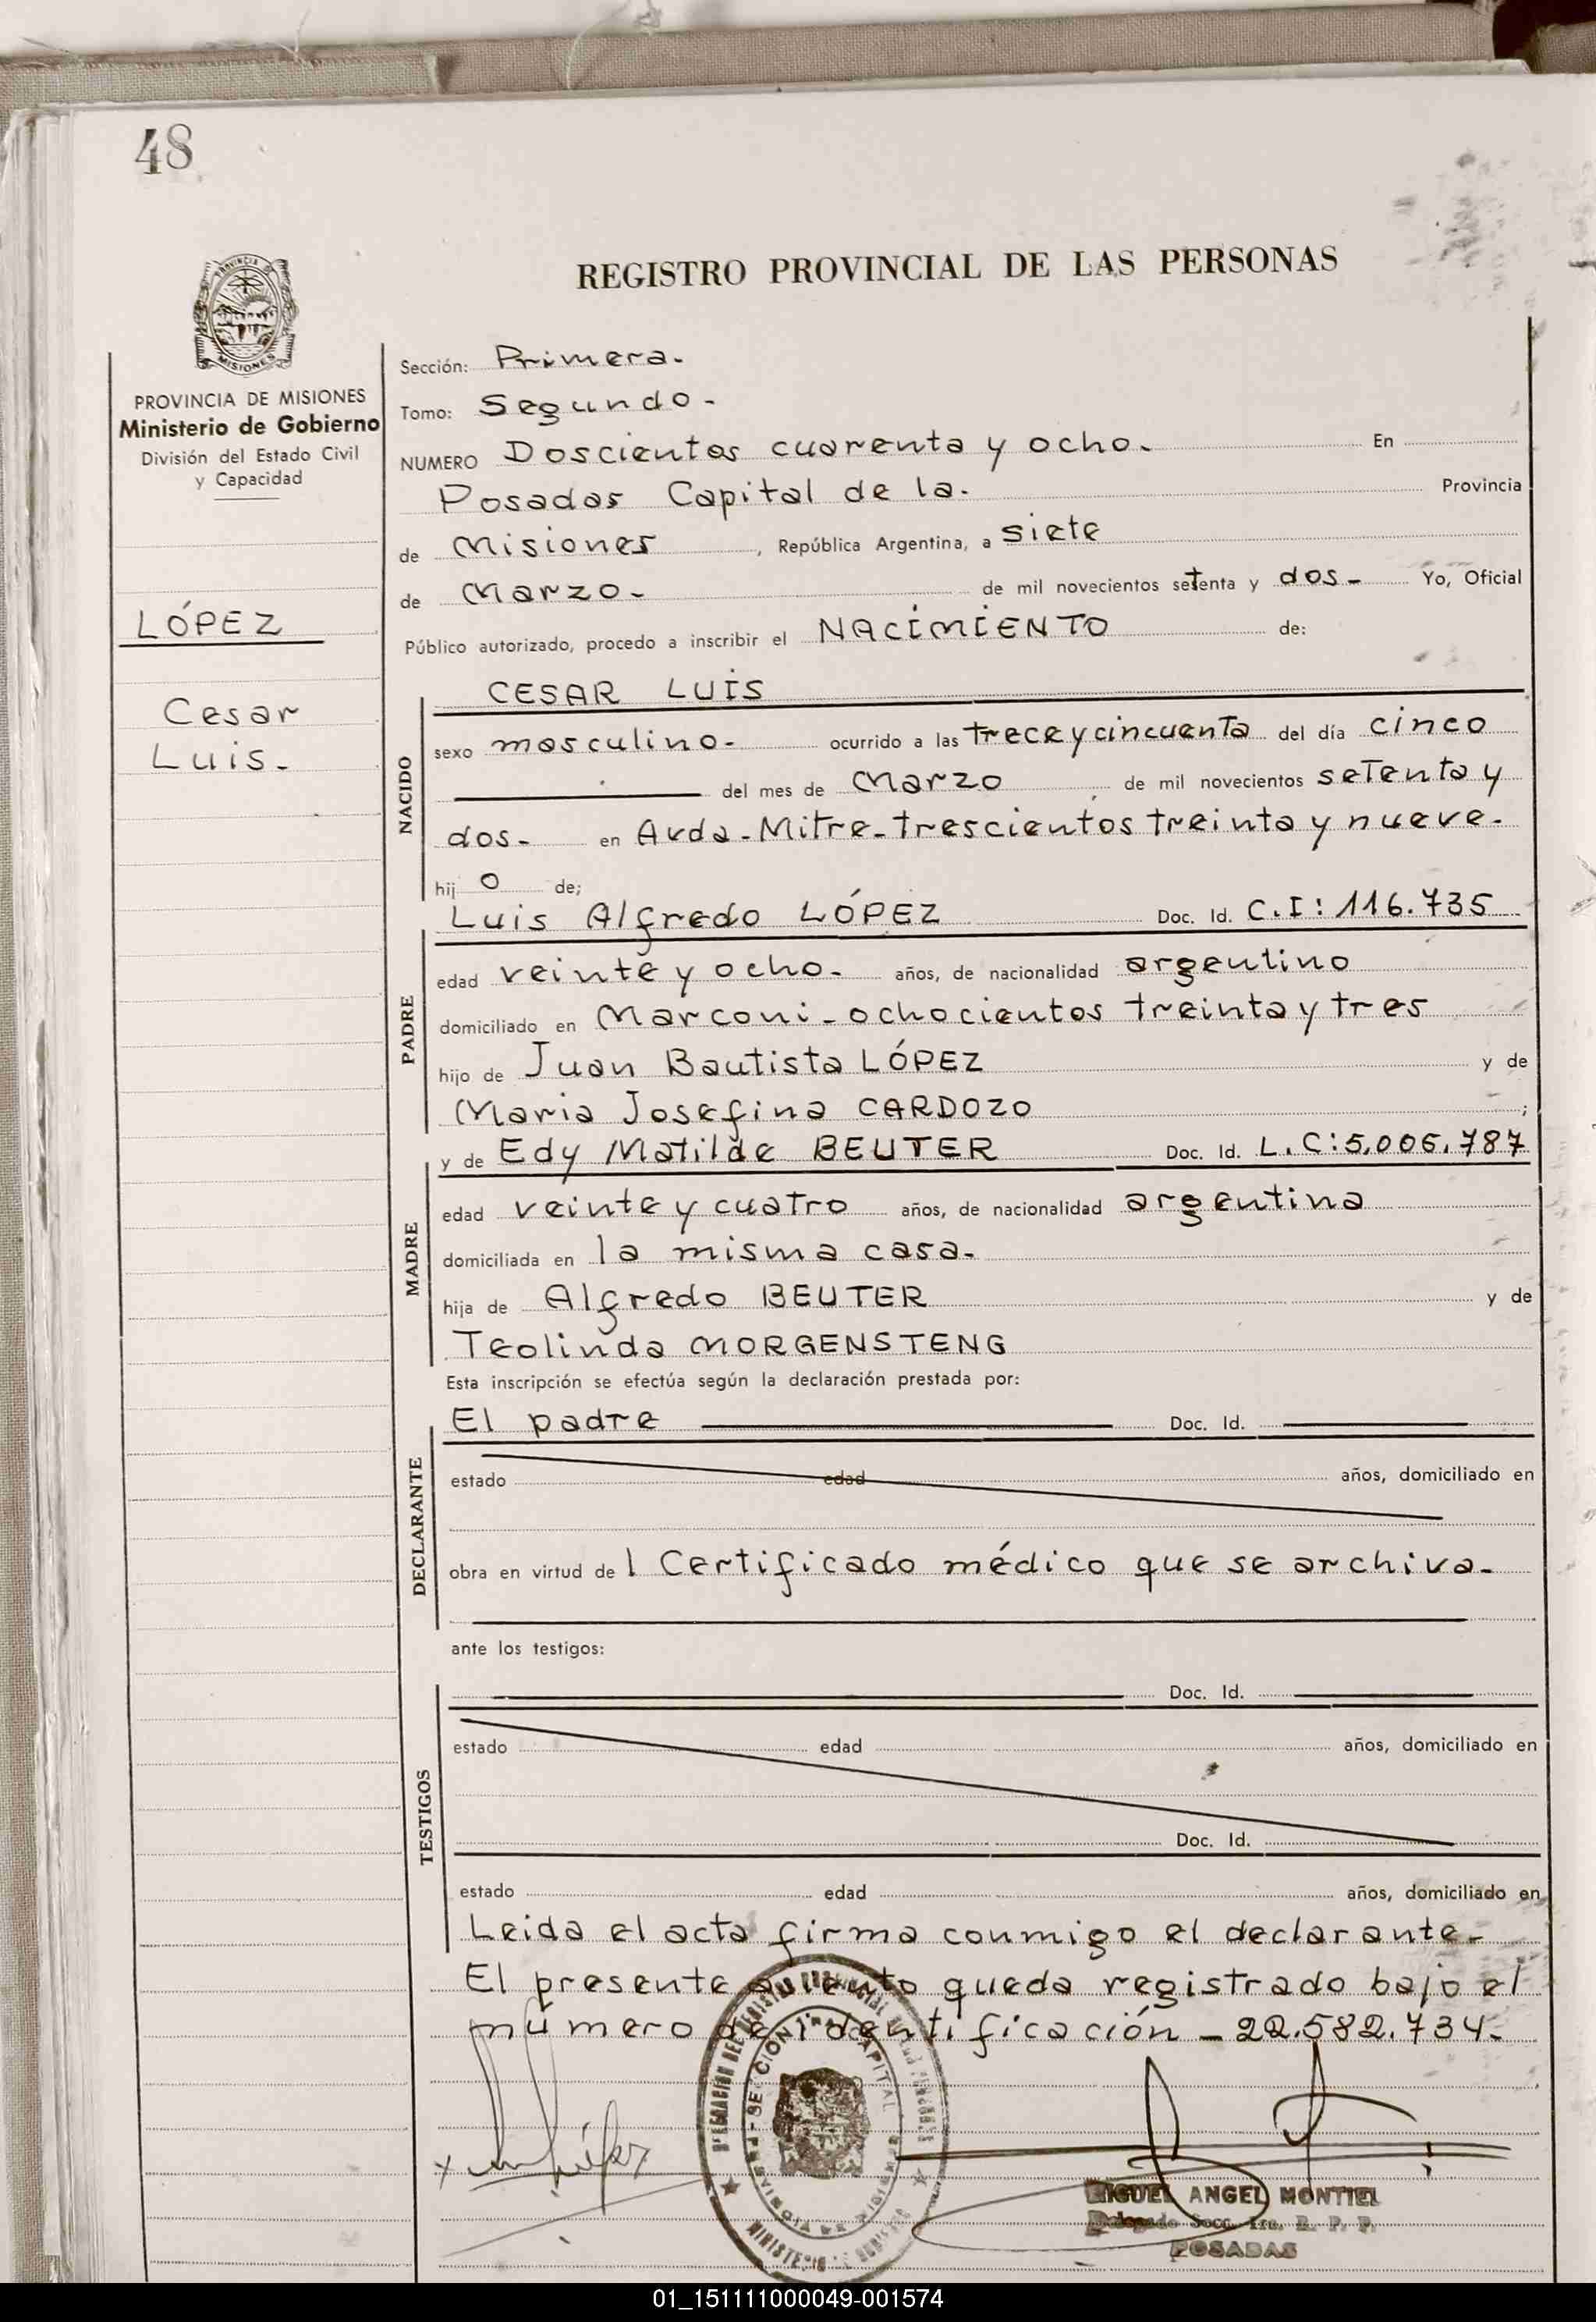 48
PROVINCIA DE
MISIONES
PROVINCIA DE MISIONES
Ministerio de Gobierno
División del Estado Civil
y Capacidad
LÓPEZ
Cesar
Luis.-
REGISTRO PROVINCIAL DE LAS PERSONAS
Sección: Primera.-
Tomo: Segundo.-
NUMERO Doscientos cuarenta y ocho.- En
Posadas Capital de la.- Provincia
de Misiones, República Argentina, a siete
de Marzo.- de mil novecientos setenta y dos.- Yo, Oficial
Público autorizado, procedo a inscribir el NACIMIENTO de:
CESAR LUIS
NACIDO
sexo masculino.- ocurrido a las trece y cincuenta del día cinco
del mes de Marzo de mil novecientos setenta y
dos.- en Avda.-Mitre-trescientos treinta y nueve.-
hij o de;
Luis Alfredo LÓPEZ Doc. Id. C.I: 116.735
PADRE
edad veinte y ocho.- años, de nacionalidad argentino
domiciliado en Marconi-ochocientos treinta y tres
hijo de Juan Bautista LÓPEZ y de
Maria Josefina CARDOZO ;
y de Edy Matilde BEUTER Doc. Id. L.C:5.006.787
MADRE
edad veinte y cuatro años, de nacionalidad argentina
domiciliada en la misma casa.-
hija de Alfredo BEUTER y de
Teolinda MORGENSTENG
Esta inscripción se efectúa según la declaración prestada por:
El padre Doc. Id.
DECLARANTE
estado edad años, domiciliado en
obra en virtud de l Certificado médico que se archiva.-
ante los testigos:
Doc. Id.
TESTIGOS
estado edad años, domiciliado en
Doc. Id.
estado edad años, domiciliado en
Leida el acta firma conmigo el declarante.-
El presente asiento queda registrado bajo el
número de identificación - 22.582.734.-
MIGUEL ANGEL MONTIEL
Delegado Secc. 1ra. R. P. P.
POSADAS
01_151111000049-001574